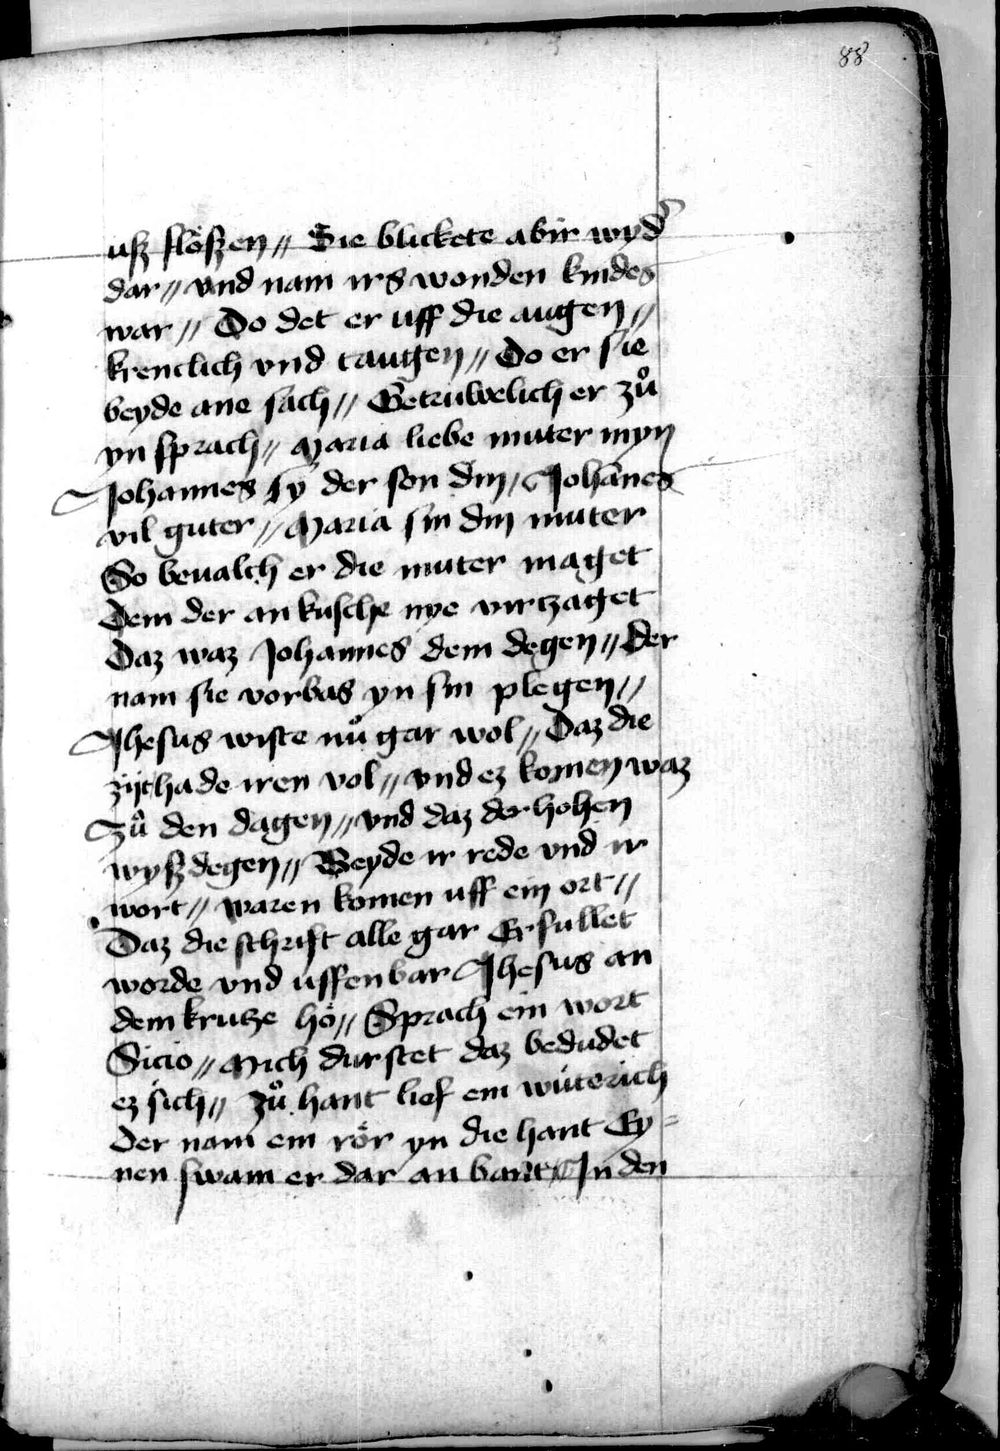 88
uſz flöſzen // Sie blickete abir wyd᷑
dar // vnd nam irs wonden kindes
war // Do det er uff die augen //
krenclich vnd taugen // Do er sie
beyde ane sach // Getruwelich er zuͦ
yn sprach // Maria liebe muter myn
Johannes sy der son din / Johānes
vil guter // Maria sin din muter
So beualch er die muter maget
Dem der an kusche nye virtzaget
Daz waz Johannes dem degen // Der
nam sie vorbas yn sin plegen //
Jhesus wiste nuͦ gar wol // Daz die
zijt hade iren vol // vnd ez komen waz
Zuͦ den dagen // vnd daz der hohen
wyſzdegen // Beyde ir rede vnd ir
wort // waren komen uff ein ort //
Daz die schrift alle gar Erfullet
worde vnd uffenbar Jhesus an
dem krutze hö // Sprach ein wort
Sicio // Mich durstet daz bedudet
ez sich // Zuͦ hant lief ein wüterich
Der nam ein rör yn die hant Ey=
nen swam er dar an bant / In den